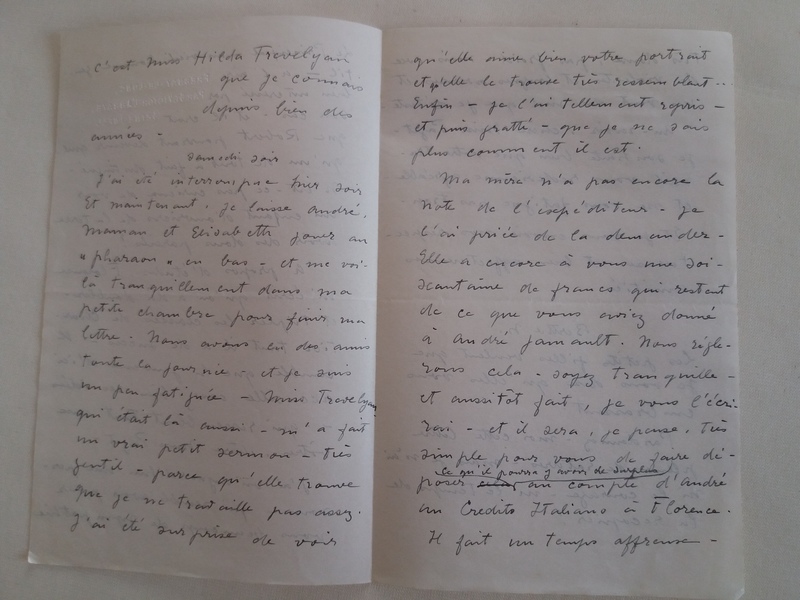 c'est Miss Hilda Trevelyan
que je connais
depuis bien des
années -
samedi soir
J'ai été interrompue hier soir
Et maintenant. je laisse André,
Maman et Elisabeth jouer au
"pharaon" en bas - et me voi-
là tranquillement dans ma
petite chambre pour finir ma
lettre. Nous avons eu des amis
toute la journée - et je suis
un peu fatiguée - Miss Trevelyan
qui était là aussi - m'a fait
un vrai petit sermon - très
gentil - parce qu'elle trouve
que je ne travaille pas assez.
J'ai été surprise de voir
qu'elle aime bien votre portrait
et qu'elle le trouve très ressemblant...
Enfin - je l'ai tellement repris -
et puis gratté - que je ne sais
plus comment il est.
Ma mère n'a pas encore la
note de l'expéditeur - je
l'ai priée de la demander -
Elle a encore à vous une soi-
xantaine de francs qui restent
de ce que vous aviez donné
à André Janault. Nous règle-
rons cela - soyez tranquille -
et aussitôt fait, je vous l'écri-
rai - et il sera, je pense, très
simple pour vous de faire dé-
ce qu'il pourra y avoir de surplus
poser au compte d'André
au Credito Italiano à Florence.
Il fait un temps affreux -